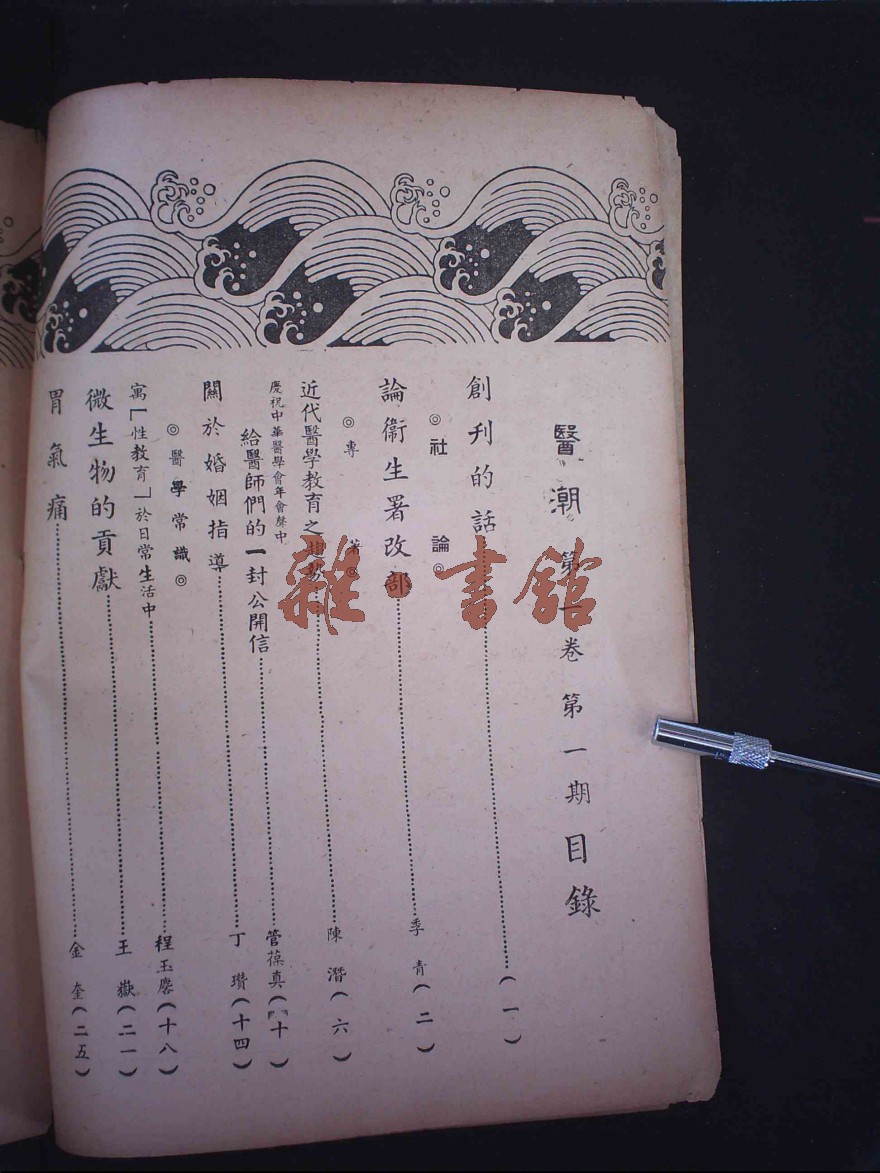 醫潮 第一卷 第一期 目錄
創刊的話……(一)
◎社論◎
論衞生署改部……季青(二)
◎專著◎
近代醫學教育之趨勢……陳潛(六)
慶祝中華醫學會年會聲中
給醫師們的一封公開信……管葆真(十)
關於婚姻指導……丁瓚(十四)
◎醫學常識◎
寓「性教育」於日常生活中……程玉麐(十八)
微生物的貢獻……王嶽(二一)
胃氣痛……金奎(二五)
雜·書館